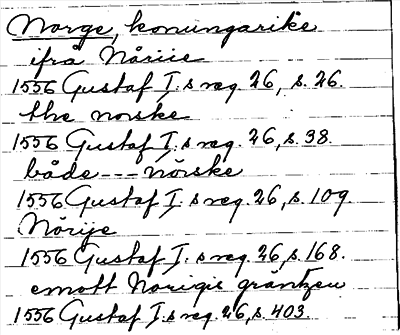 Norge, konungarike
ifrå Nåriie
1556 Gustaf I:s reg. 26, s. 26.
the norske
1556 Gustaf I:s reg. 26, s. 38.
både --- nörske
1556 Gustaf I:s reg. 26, s. 109.
Nörije
1556 Gustaf I:s reg. 26, s. 168.
emott Norigis gräntzen
1556 Gustaf I:s reg. 26, s. 403.